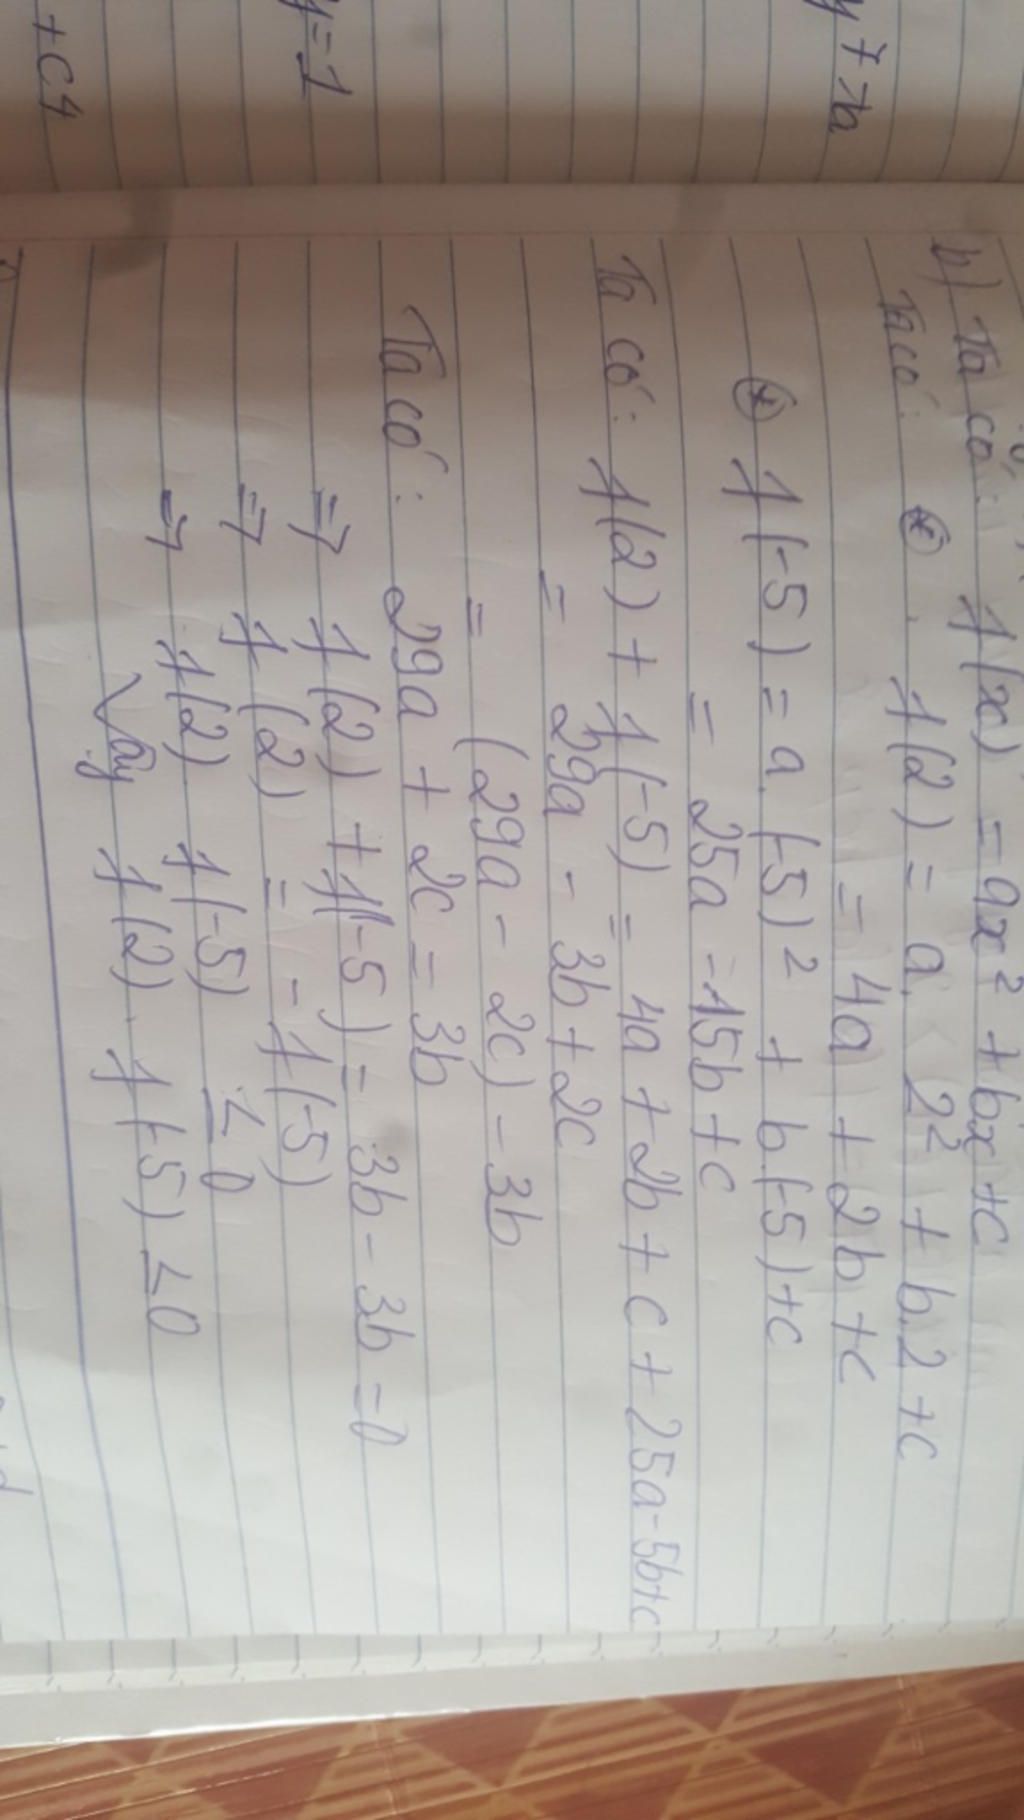 y + >h
y=1
+c4
b) Ta có: f(x) = ax² + bx + c
Ta có: * . f(2) = a. 2² + b.2 + c
= 4a + 2b + c
* f(-5) = a.(-5)² + b.(-5)+c
= 25a -15b + c
Ta có: f(2) + f(-5) = 4a + 2b + c + 25a - 5b+c
= 29a - 3b + 2c
= (29a - 2c) - 3b
Ta có: 29a + 2c = 3b
=> f(2) + f(-5) = 3b - 3b = 0
=> f(2) = - f(-5)
=> f(2) f(-5) ≤ 0
Vậy f(2). f(-5) ≤ 0